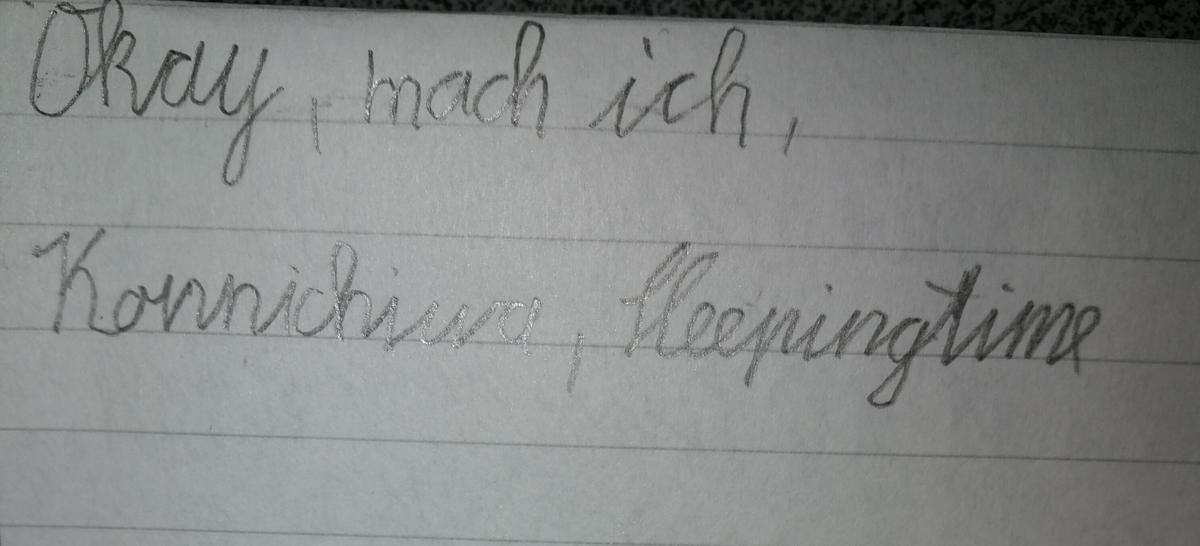 Okay, mach ich,
Konnichiwa, Sleepingtime